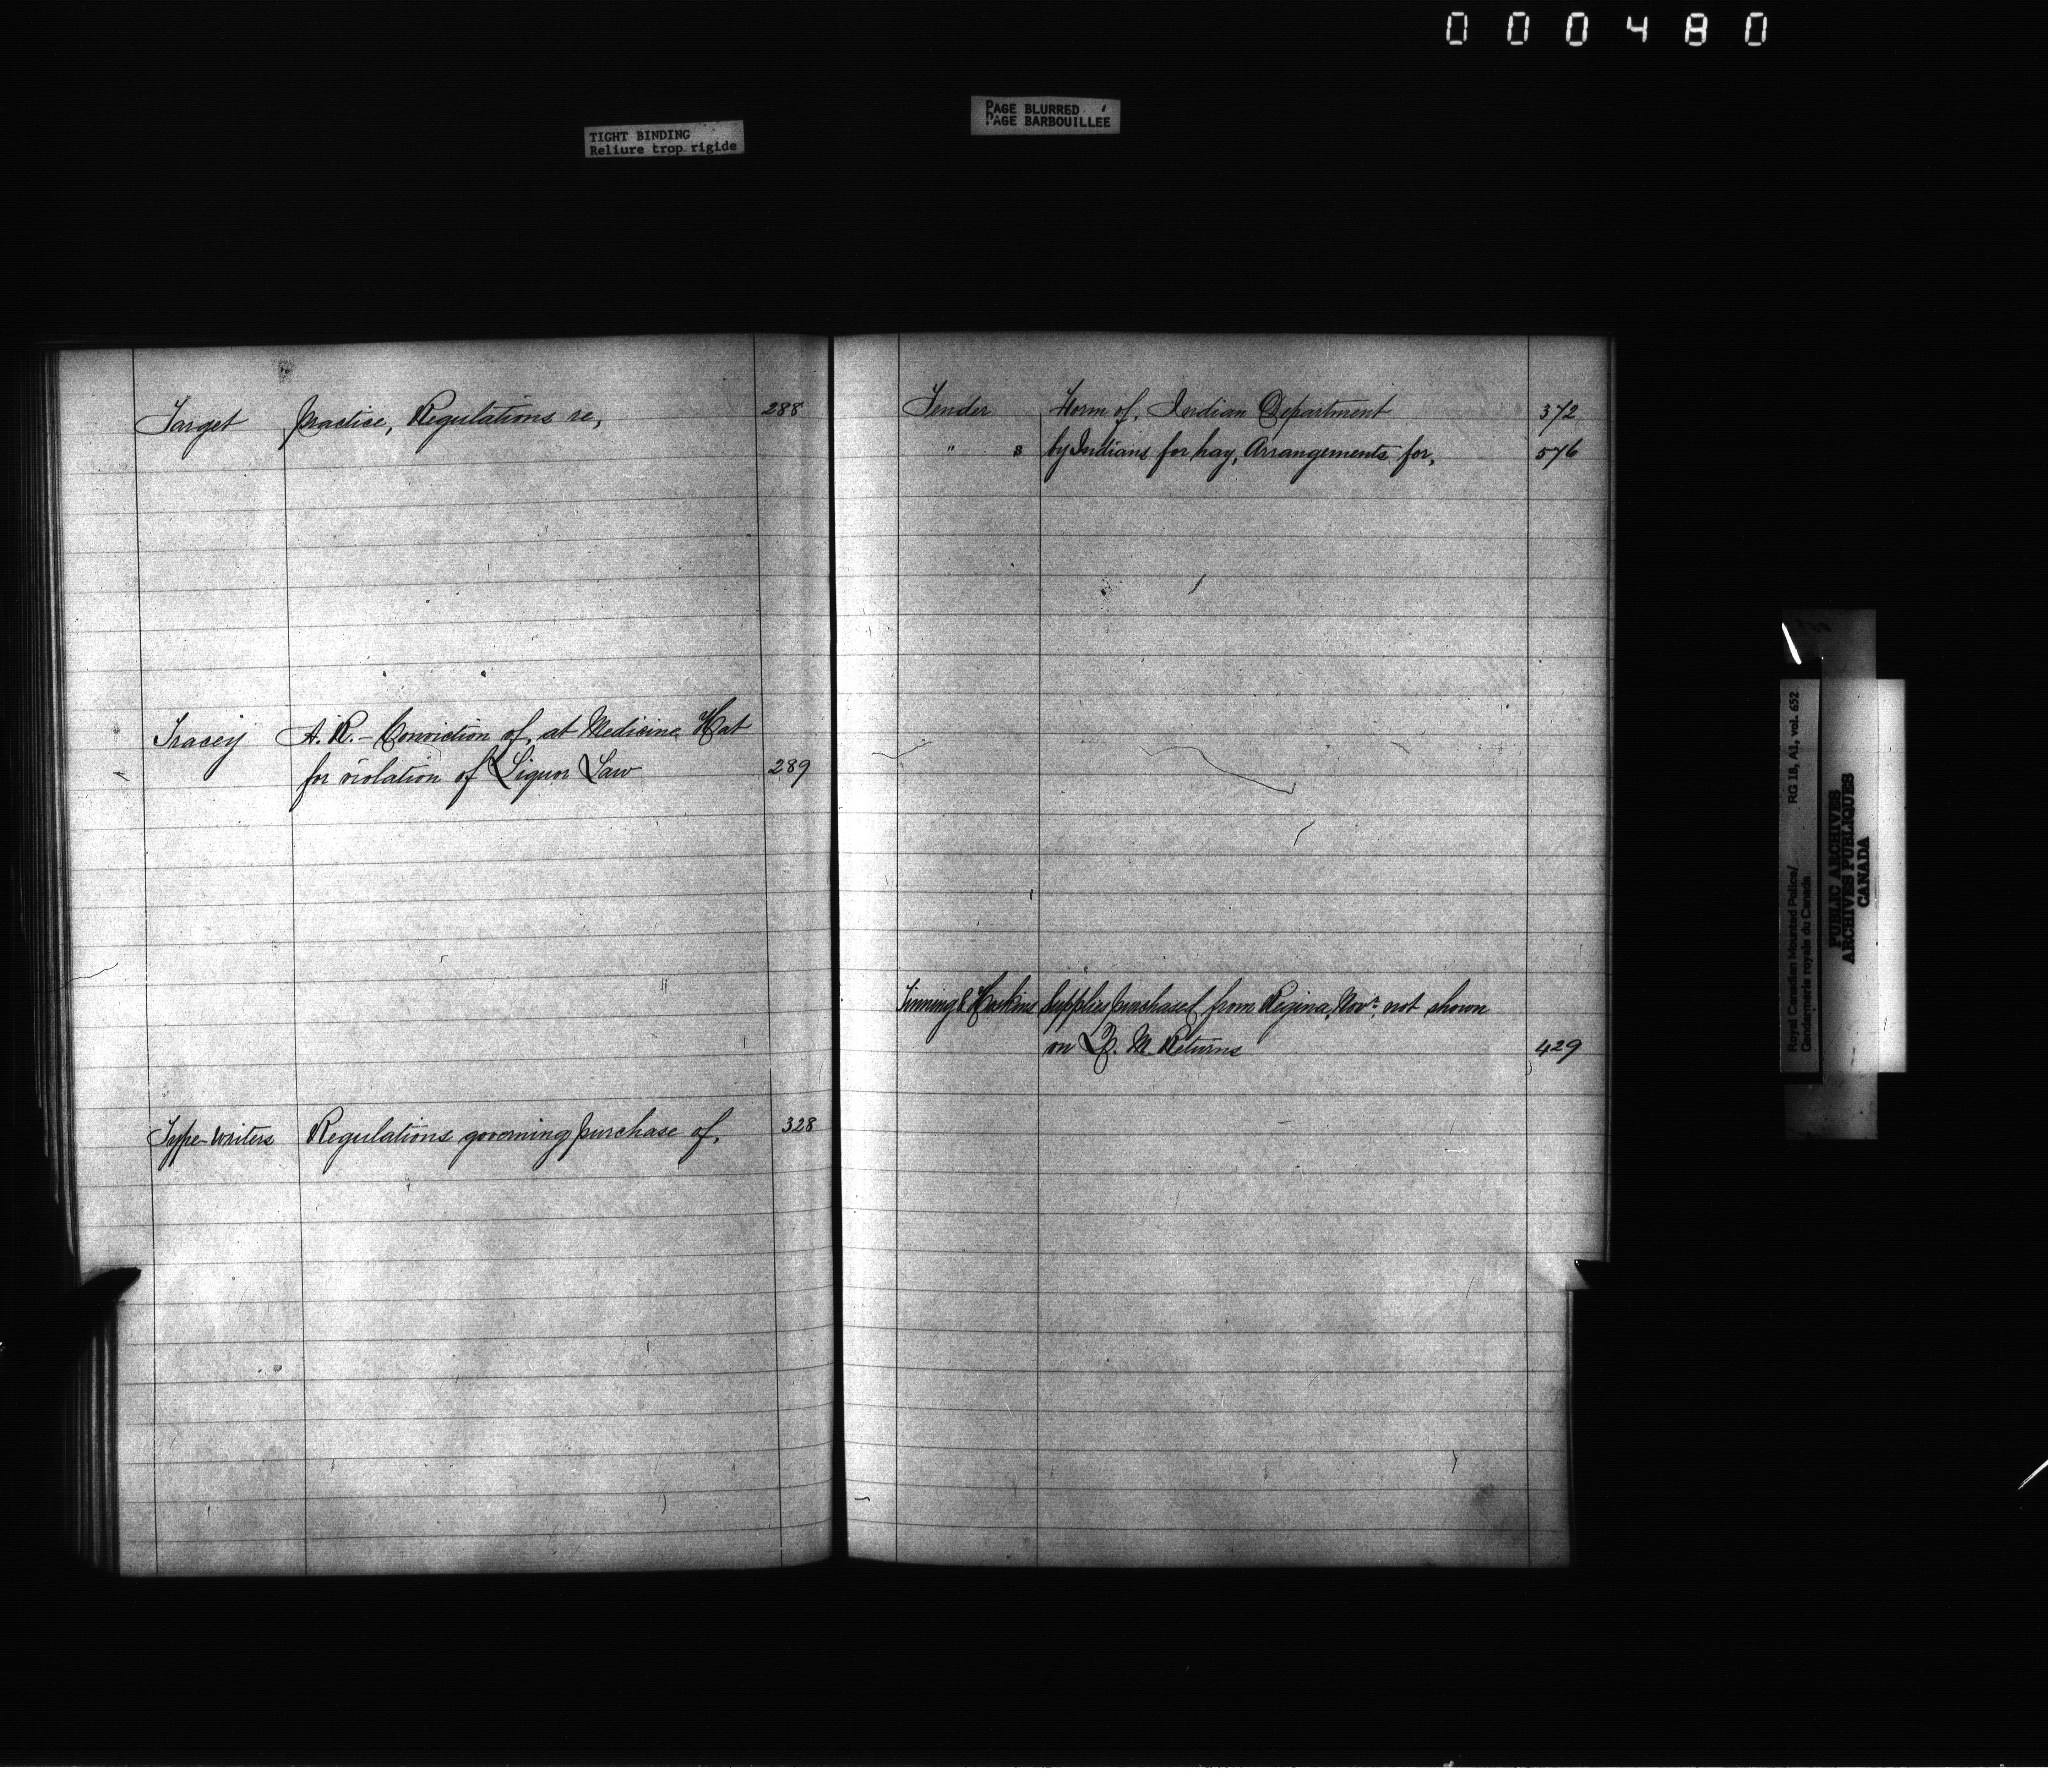 000480
TIGHT BINDING
Reliure trop rigide
PAGE BLURRED
PAGE BARBOUILLÉE
Target practice, Regulations re, 288
Tracey A. R. - Conviction of, at Medicine Hat
for violation of Liquor Law 289
Type-writers Regulations governing purchase of, 328
Tender Form of, Indian Department 372
" s by Indians for hay, Arrangements for, 576
Tinning & Hoskins Supplies purchased from Regina, Novr. not shown
on Q. M. Returns 429
Royal Canadian Mounted Police/ RG 18, A1, vol. 652
Gendarmerie royale du Canada
PUBLIC ARCHIVES
ARCHIVES PUBLIQUES
CANADA